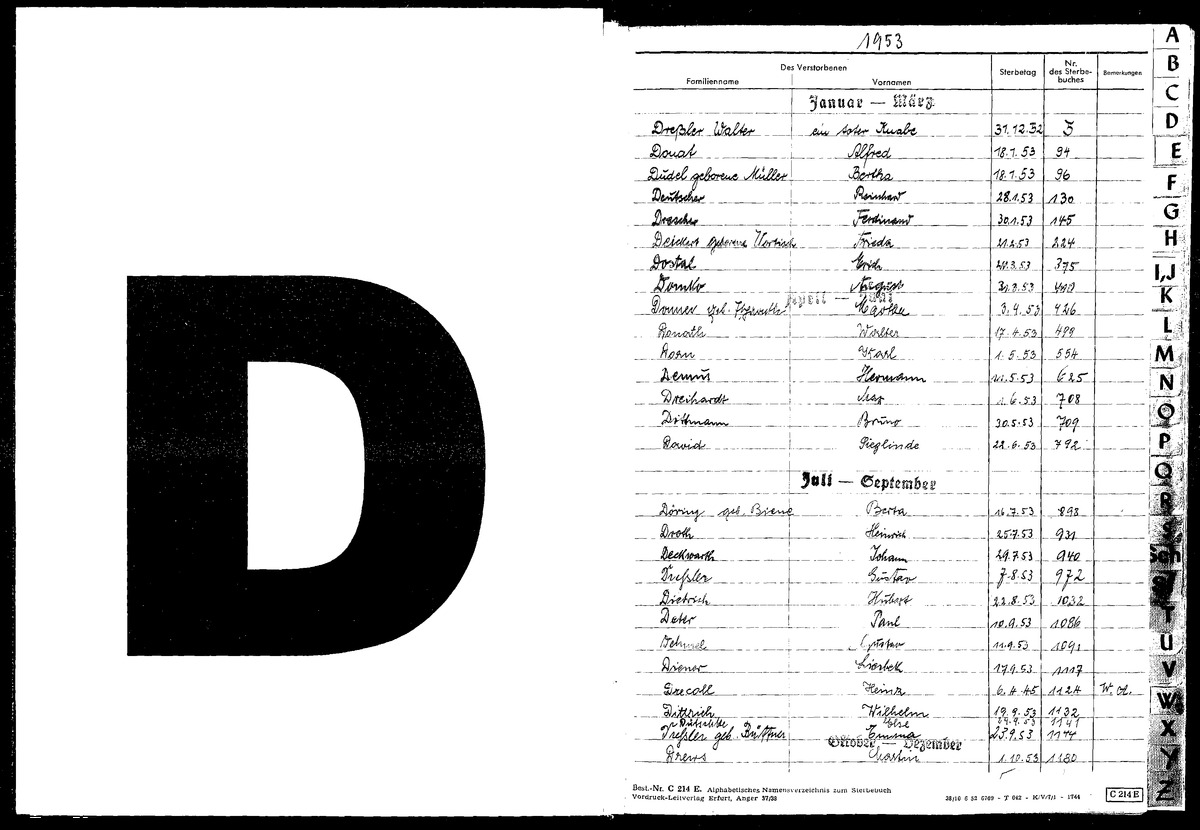 D
1953
Des Verstorbenen
Familienname Vornamen Sterbetag Nr. des Sterbe-buches Bemerkungen
Januar — März
Dreßler Walter ein toter Knabe 31.12.52 3
Donat Alfred 18.1.53 94
Dudel geborene Müller Bertha 18.1.53 96
Deutscher Reinhard 28.1.53 130
Drescher Ferdinand 30.1.53 145
Deickert geborene Frieda 21.2.53 224
Dostal Erich 20.3.53 375
August 31.3.53 400
April — Juni
Donner geb. Martha 3.4.53 426
Donath Walter 17.4.53 499
Dorn Karl 1.5.53 554
Demus Hermann 5.53 625
Dreihardt Max 1.6.53 708
Dittmann Bruno 30.5.53 709
David Sieglinde 22.6.53 792
Juli — September
Döring geb. Biene Berta 16.7.53 898
Droth Heinrich 25.7.53 931
Deckwarth Johann 29.7.53 940
Dreßler Gustav 7.8.53 972
Dietrich Hubert 22.8.53 1032
Deter Paul 10.9.53 1086
Gustav 11.9.53 1091
Diener 17.9.53 1117
Drecoll Heinz 6.4.45 1124
Dittrich Wilhelm 19.9.53 1132
Dutschke Else 24.9.53 1141
Dreßler geb. Büttner Emma 23.9.53 1144
Oktober — Dezember
Drews Martin 1.10.53 1180
Best.-Nr. C 214 E. Alphabetisches Namensverzeichnis zum Sterbebuch
Vordruck-Leitverlag Erfurt, Anger 37/38
C 214 E
A
B
C
D
E
F
G
H
I,J
K
L
M
N
O
P
Q
R
S
Sch
St
T
U
V
W
X
Y
Z